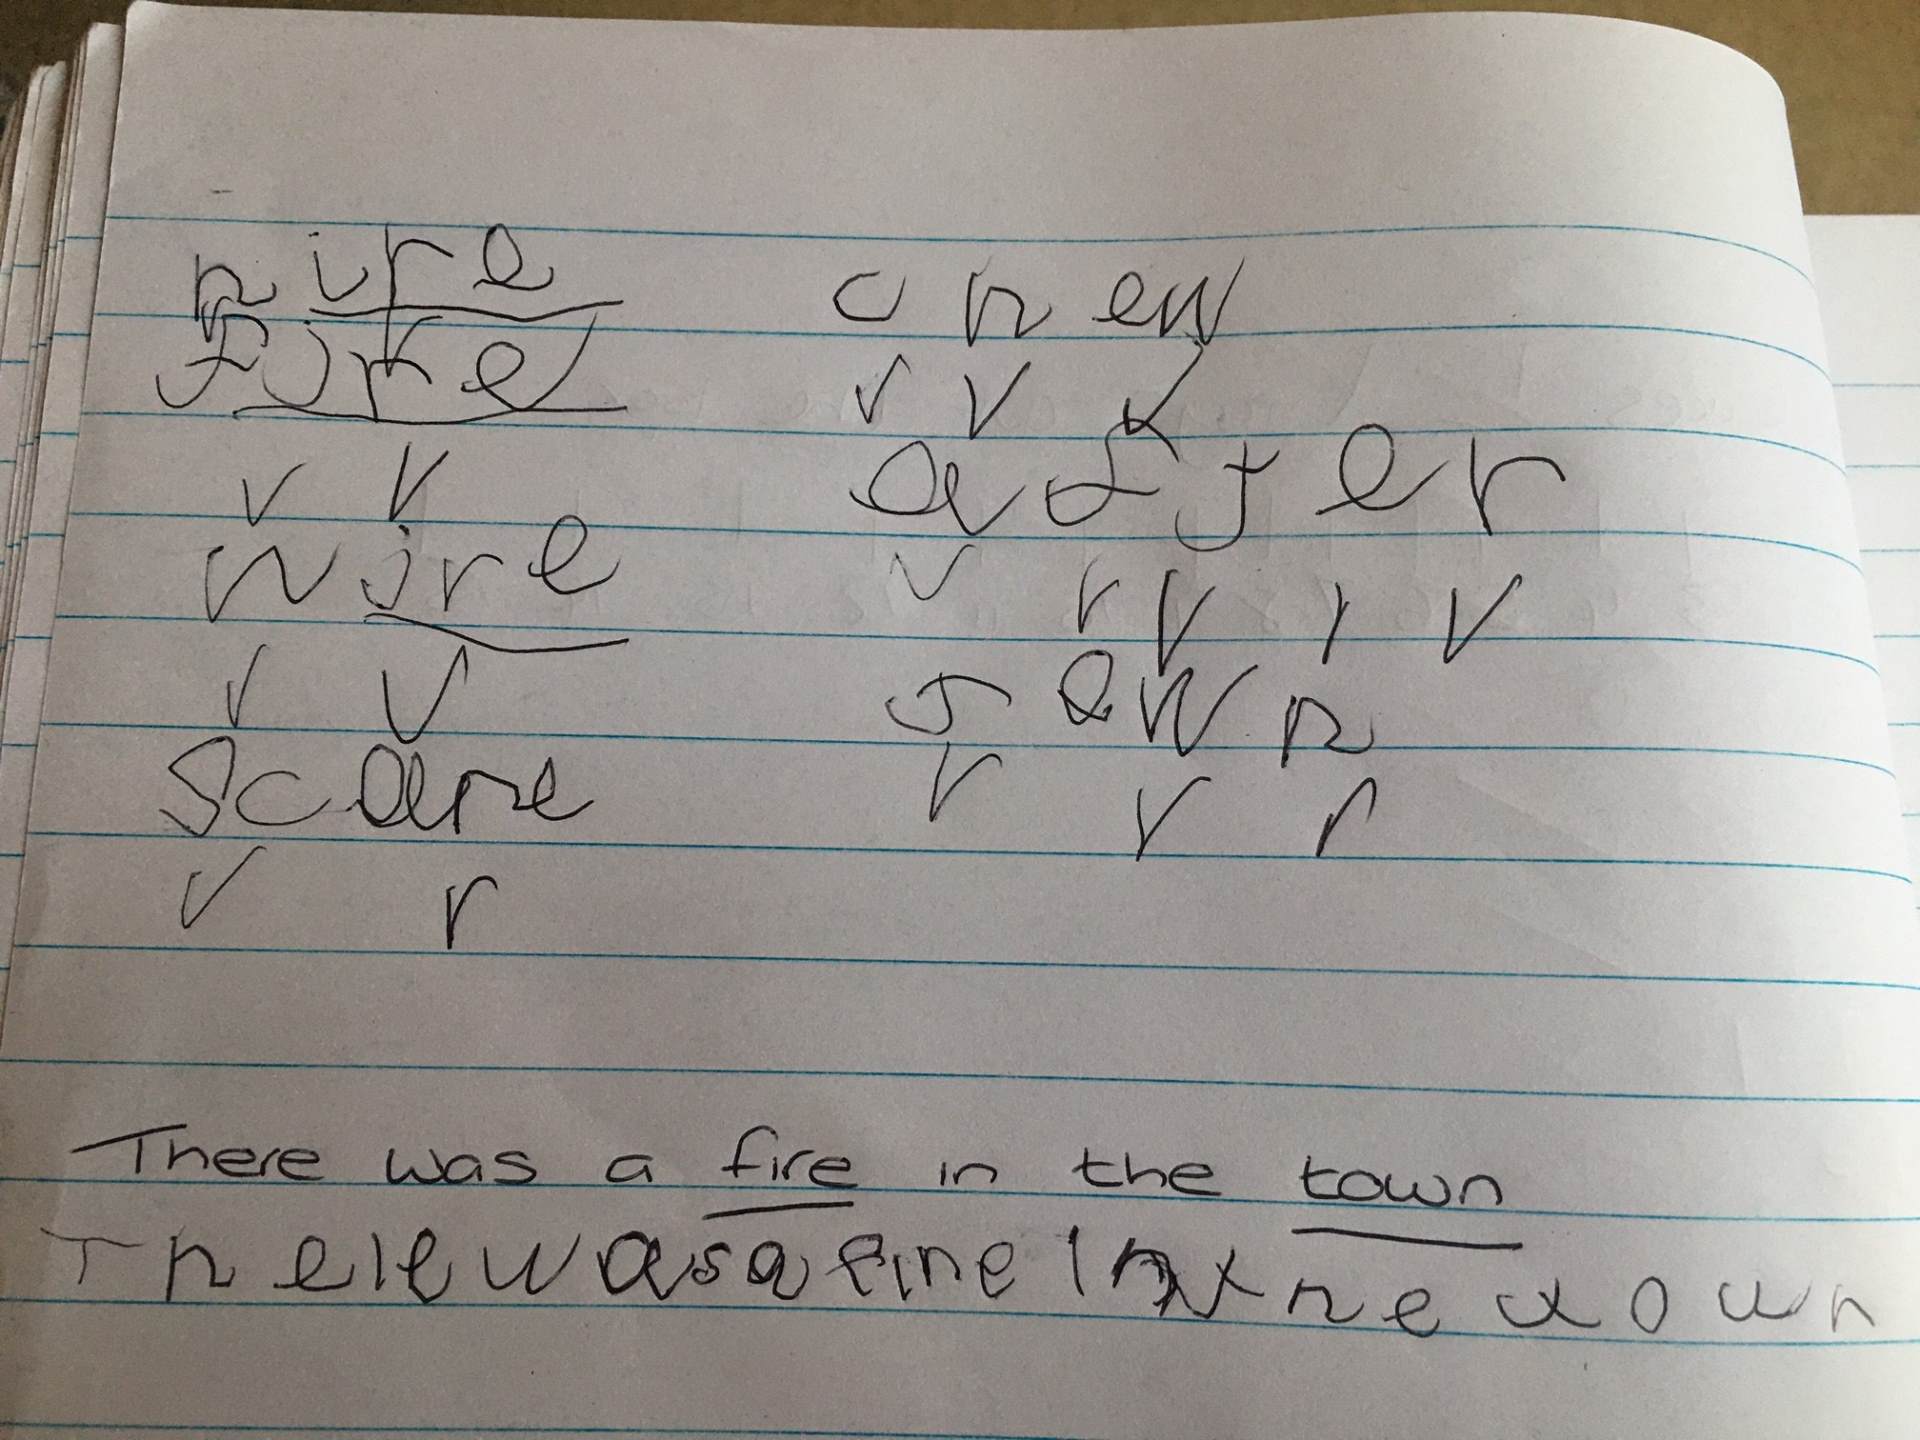 hire
fire
wire
scare
chew
after
town
There was a fire in the town
There was a fire in the town